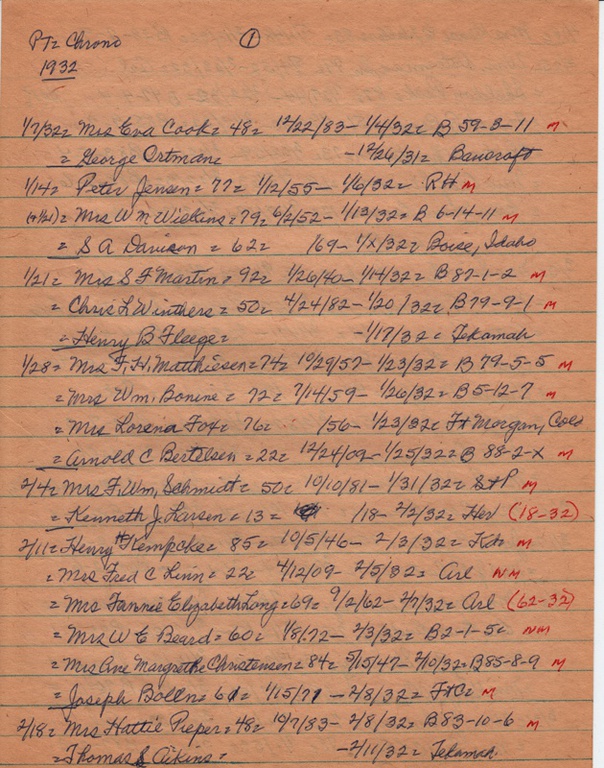 PT= Chrono ①
1932
1/7/32= Mrs Eva Cook= 48= 12/22/83- 1/4/32= B 59-3-11 M
= George Ortman= -12/26/31= Bancroft
1/14= Peter Jensen= 77= 1/12/55- 1/6/32= RH M
(+1/21)= Mrs W N Wilkins= 79= 6/2/52- 1/13/32= B 6-14-11 M
= S A Davison= 62= /69- 1/X/32= Boise, Idaho
1/21= Mrs S F Martin= 92= 1/26/40- 1/14/32= B 87-1-2 M
= Chris L Winthers= 50= 4/24/82- 1/20/32= B 79-9-1 M
= Henry B Fleege= -1/17/32= Tekamah
1/28= Mrs F. H. Matthiesen= 74= 10/29/57- 1/23/32= B 79-5-5 M
= Mrs Wm. Bonine= 72= 7/14/59- 1/26/32= B 5-12-7 M
= Mrs Lorena Fox= 76= /56- 1/23/32= Ft Morgan, Colo
= Arnold C Bertelsen= 22= 12/24/09- 1/25/32= B 88-2-X M
2/4= Mrs F. Wm. Schmidt= 50= 10/10/81- 1/31/32= S+P M
= Kenneth J. Larsen= 13= /18- 2/2/32= Her (18-32)
2/11= Henry H Kempcke= 85= 10/5/46- 2/3/32= M
= Mrs Fred C Linn= 22= 4/12/09- 2/5/32= Arl NM
= Mrs Fannie Elizabeth Long= 69= 9/2/62- 2/7/32= Arl (62-32)
= Mrs W E Beard= 60= 1/8/72- 2/3/32= B 2-1-5= NM
= Mrs Ane Margrethe Christensen= 84= 5/15/47- 2/10/32= B 85-8-9 M
= Joseph Bolln= 61= 1/15/71 -2/8/32= FtC= M
2/18= Mrs Hattie Pieper= 48= 10/7/83- 2/8/32= B 83-10-6 M
= Thomas S Aikins= -2/11/32= Tekamah